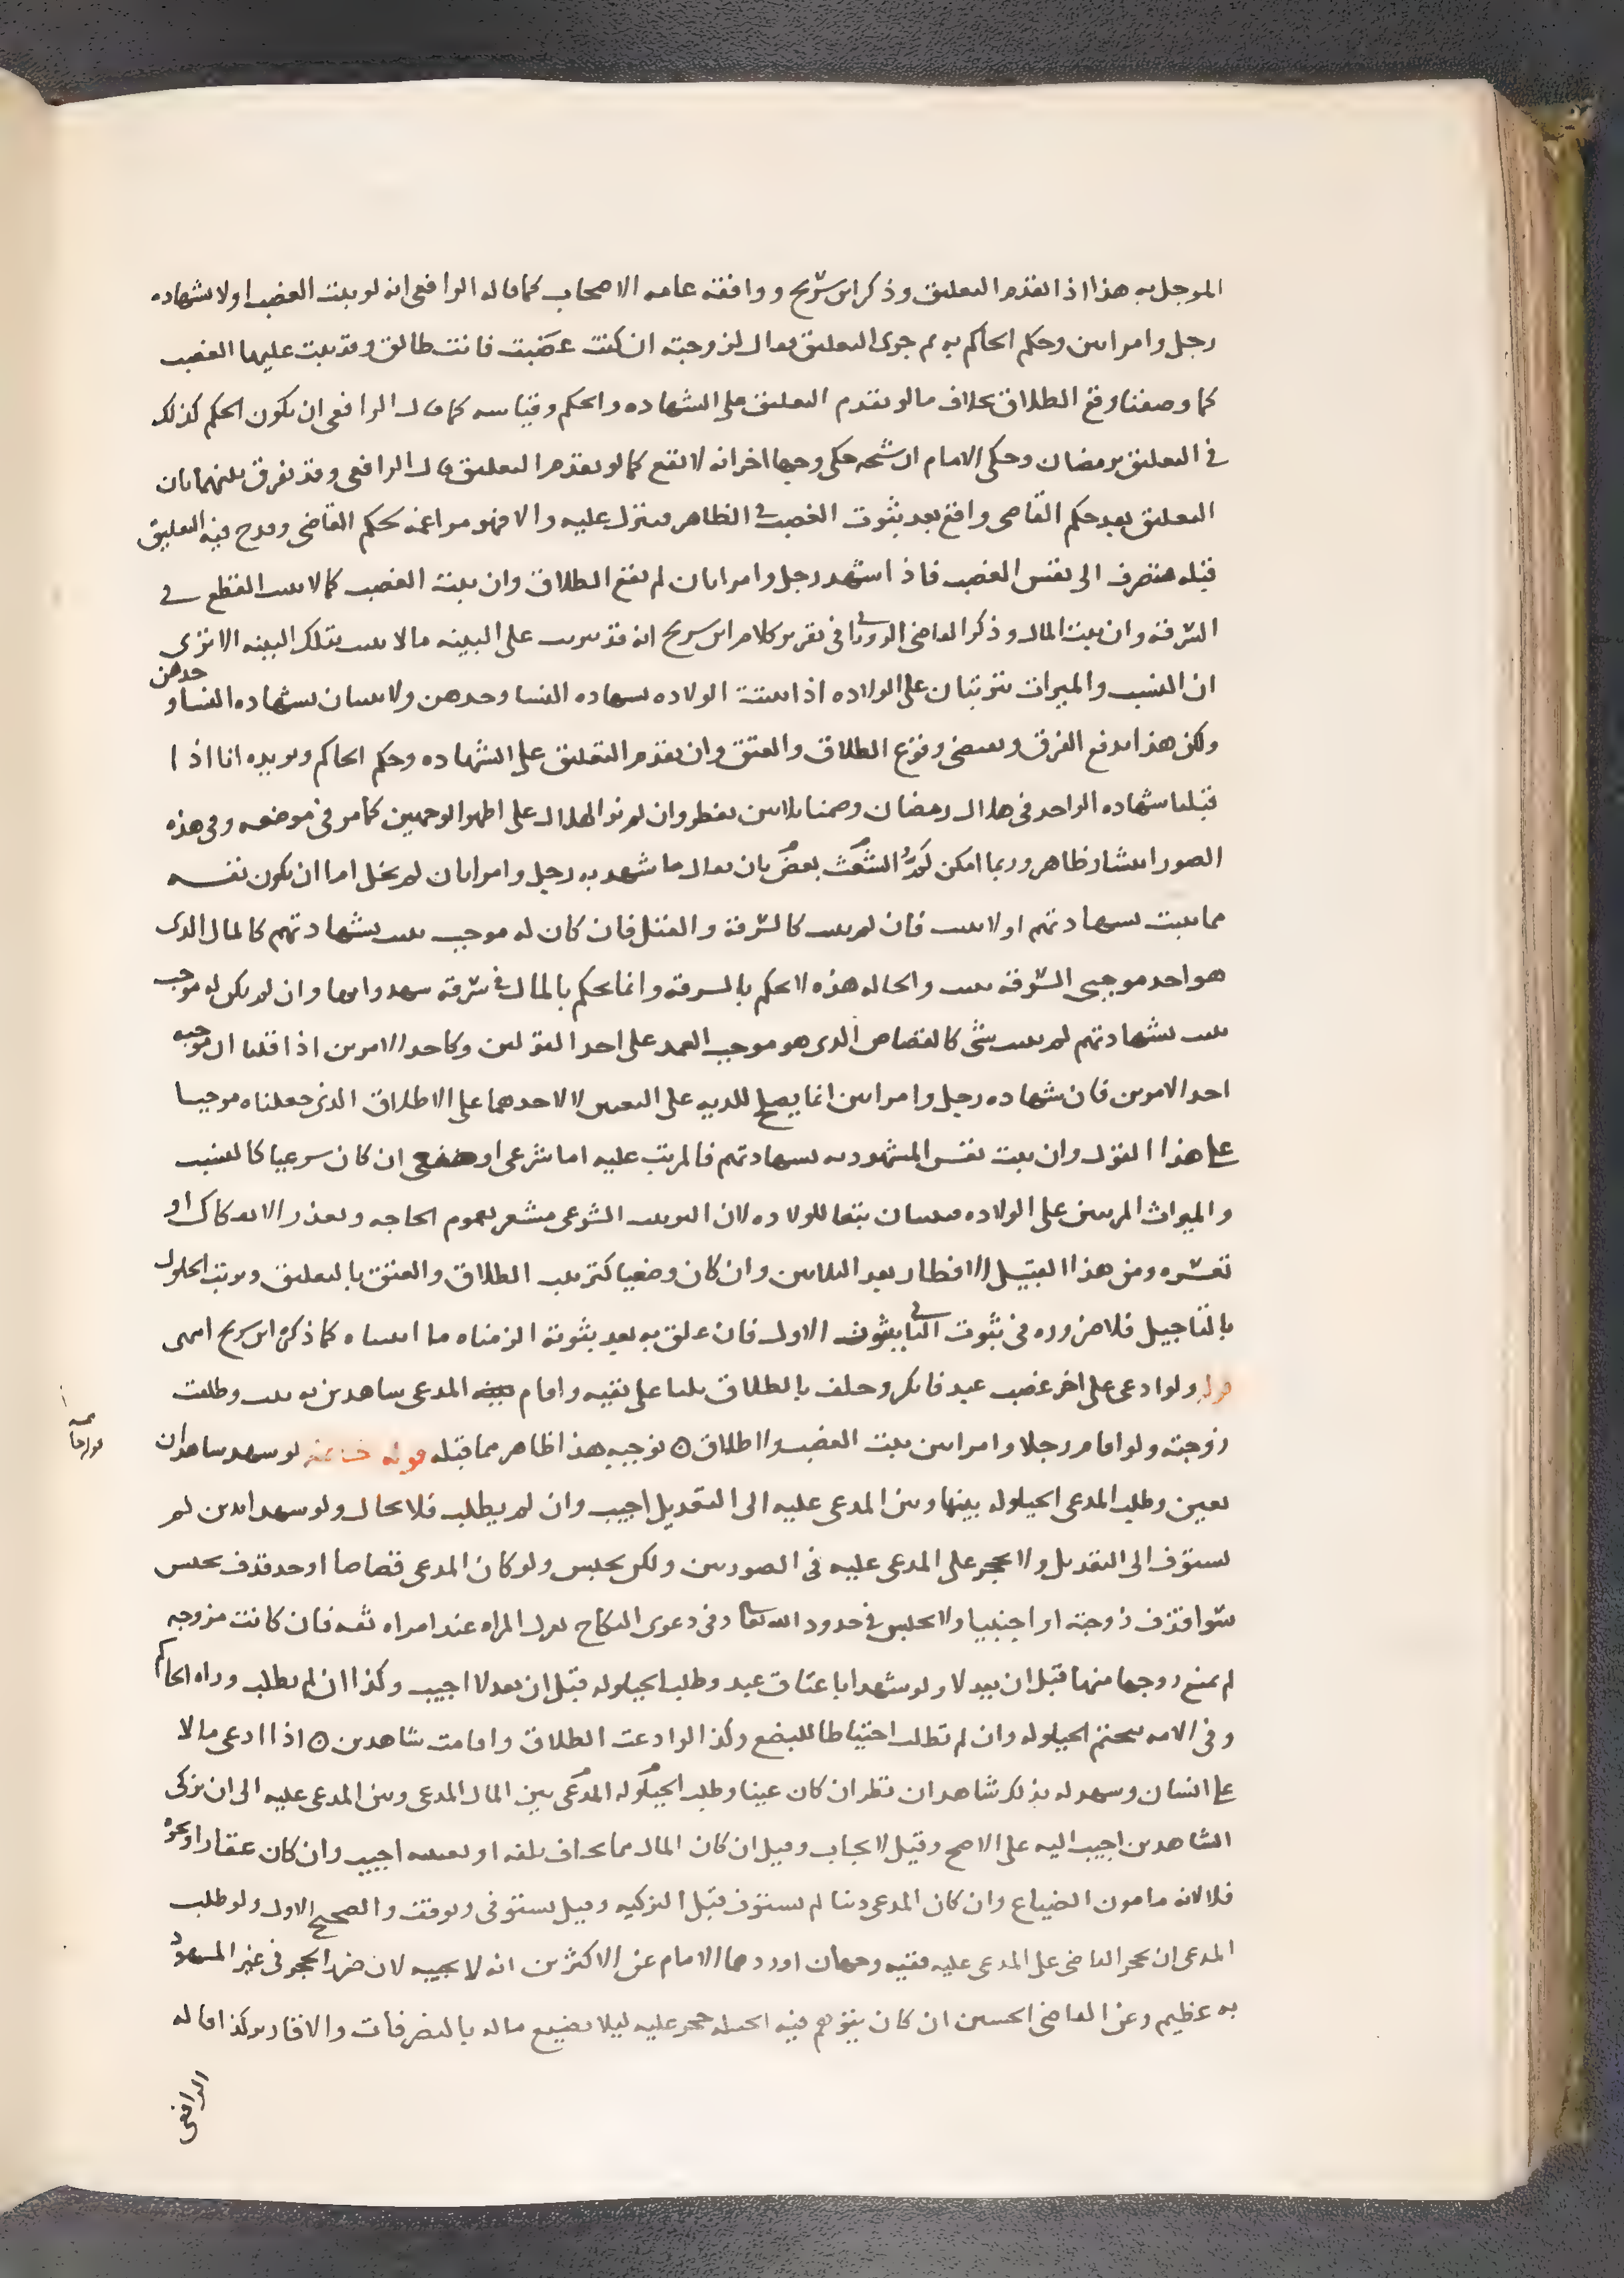 الموجل به هذا اذا تقدم التعليق وذكر ابن سريج ووافقه عامه الاصحاب كما قاله الرافعى انه لو ثبت الغصب اولا بشهاده
رجل وامراتين وحكم الحاكم به ثم جرى التعليق فقال لزوجته ان كنت غصبت فانت طالق وقد ثبت عليها الغصب
كما وصفنا وقع الطلاق بخلاف ما لو تقدم التعليق على الشهاده والحكم وقياسه كما قال الرافعى ان يكون الحكم كذلك
فى التعليق برمضان وحكى الامام ان شيخه حكى وجها اخر انه لا يقع كما لو تقدم التعليق قال الرافعى وقد يفرق بينهما بان
التعليق بعد حكم القاضى واقع بعد ثبوت الغصب فى الظاهر فينزل عليه والا فهو مراغمه لحكم القاضى وقدح فيه والتعليق
قبله منصرف الى نفس الغصب فاذا شهد رجل وامراتان لم يقع الطلاق وان ثبت الغصب كما لا يثبت القطع فى
السرقه وان ثبت المال وذكر القاضى الرويانى فى تقرير كلام ابن سريج انه قد يترتب على البينه ما لا يثبت بتلك البينه الا ترى
ان النسب والميراث يترتبان على الولاده اذا ثبتت الولاده بشهاده النسا وحدهن ولا يثبتان بشهاده النسا وحدهن
ولكن هذا يدفع الفرق ويقتضى وقوع الطلاق والعتق وان تقدم التعليق على الشهاده وحكم الحاكم ويويده انا اذا
قبلنا شهاده الواحد فى هلال رمضان وصمنا ثلاثين نفطر وان لم نر الهلال على اظهر الوجهين كما مر فى موضعه وفى هذه
الصور انتشار ظاهر وربما امكن لم الشعث بعض بان يقال ما شهد به رجل وامراتان لم يخل اما ان يكون نفسه
مما يثبت بشهادتهم اولا يثبت فان لم يثبت كالسرقه والقتل فان كان له موجب يثبت بشهادتهم كالمال الذى
هو احد موجبى السرقه يثبت والحاله هذه لا يحكم بالسرقه وانما يحكم بالمال فى سرقه شهدوا بها وان لم يكن له موجب
يثبت بشهادتهم لم يثبت شى كالقصاص الذى هو موجب العمد على احد القولين وكاحد الامرين اذا قلنا ان موجبه
احد الامرين فان شهاده رجل وامراتين انما يصلح للديه على التعيين لا لاحدهما على الاطلاق الذى جعلناه موجبا
على هذا القول وان ثبت نفس المشهود به بشهادتهم فالمرتب عليه اما شرعى او وضعى ان كان شرعيا كالنسب
والميراث المرتبين على الولاده فيثبتان تبعا للولاده لان الترتيب الشرعى مشعر بعموم الحاجه وتعذر الانفكاك او
تعسره ومن هذا القبيل الافطار بعد الثلاثين وان كان وضعيا كترتيب الطلاق والعتق بالتعليق وترتيب الحلول
بالتاجيل فلا ضروره فى ثبوت الثانى بثبوت الاول فان علق به بعد ثبوته الزمناه ما اثبتناه كما ذكره ابن سريج انتهى
قوله ولو ادعى على اخر غصب عبد فانكر وحلف بالطلاق ثلثا على نفيه واقام المدعى شاهدين به ثبت وطلقت
زوجته ولو اقام رجلا وامراتين ثبت الغصب ولا طلاق ٥ توجيه هذا ظاهر مما قبله قوله لو شهد شاهدان
بعين وطلب المدعى الحيلوله بينها وبين المدعى عليه الى التعديل اجيب وان لم يطلب فلا يحال ولو شهدا بدين لم
يستوف الى التعديل ولا يحجر على المدعى عليه فى الصورتين ولكن يحبس ولو كان المدعى قصاصا او حد قذف يحبس
سوا قذف زوجته او اجنبيا ولا يحبس فى حدود الله تعالى وفى دعوى النكاح تعزل المراه عند امراه ثقه فان كانت مزوجه
لم يمنع زوجها منها قبل ان يعدلا ولو شهدا باعتاق عبد وطلب الحيلوله قبل ان يعدلا اجيب وكذا ان لم يطلب وراه الحاكم
وفى الامه يتحتم الحيلوله وان لم تطلب احتياطا للبضع وكذا لو ادعت الطلاق واقامت شاهدين ٥ اذا ادعى مالا
على انسان وشهد له بذلك شاهدان نظر ان كان عينا وطلب الحيلوله المدعى بين المال المدعى وبين المدعى عليه الى ان يزكى
الشاهدين اجيب اليه على الاصح وقيل لا يجاب وقيل ان كان المال مما يخاف تلفه او تعيبه اجيب وان كان عقارا ونحوه
فلا لانه مامون الضياع وان كان المدعى دينا لم يستوف قبل التزكيه وقيل يستوفى ويوقف والصحيح الاول ولو طلب
المدعى ان يحجر القاضى على المدعى عليه ففيه وجهان اوردهما الامام عن الاكثرين انه لا يجيبه لان ضرر الحجر فى غير المشهود
به عظيم وعن القاضى الحسين ان كان يتوهم فيه الحيله حجر عليه ليلا يضيع ماله بالتصرفات والاقارير كذا قاله
الرافعى